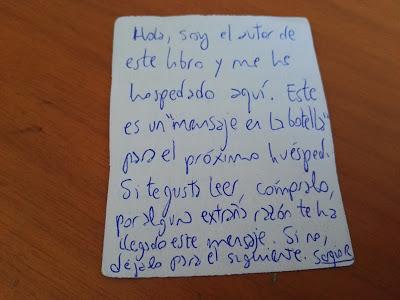 Hola, soy el autor de
este libro y me he
hospedado aquí. Este
es un "mensaje en la botella"
para el próximo huésped.
Si te gusta leer, cómpralo,
por alguna extraña razón te ha
llegado este mensaje. Si no,
déjalo para el siguiente.